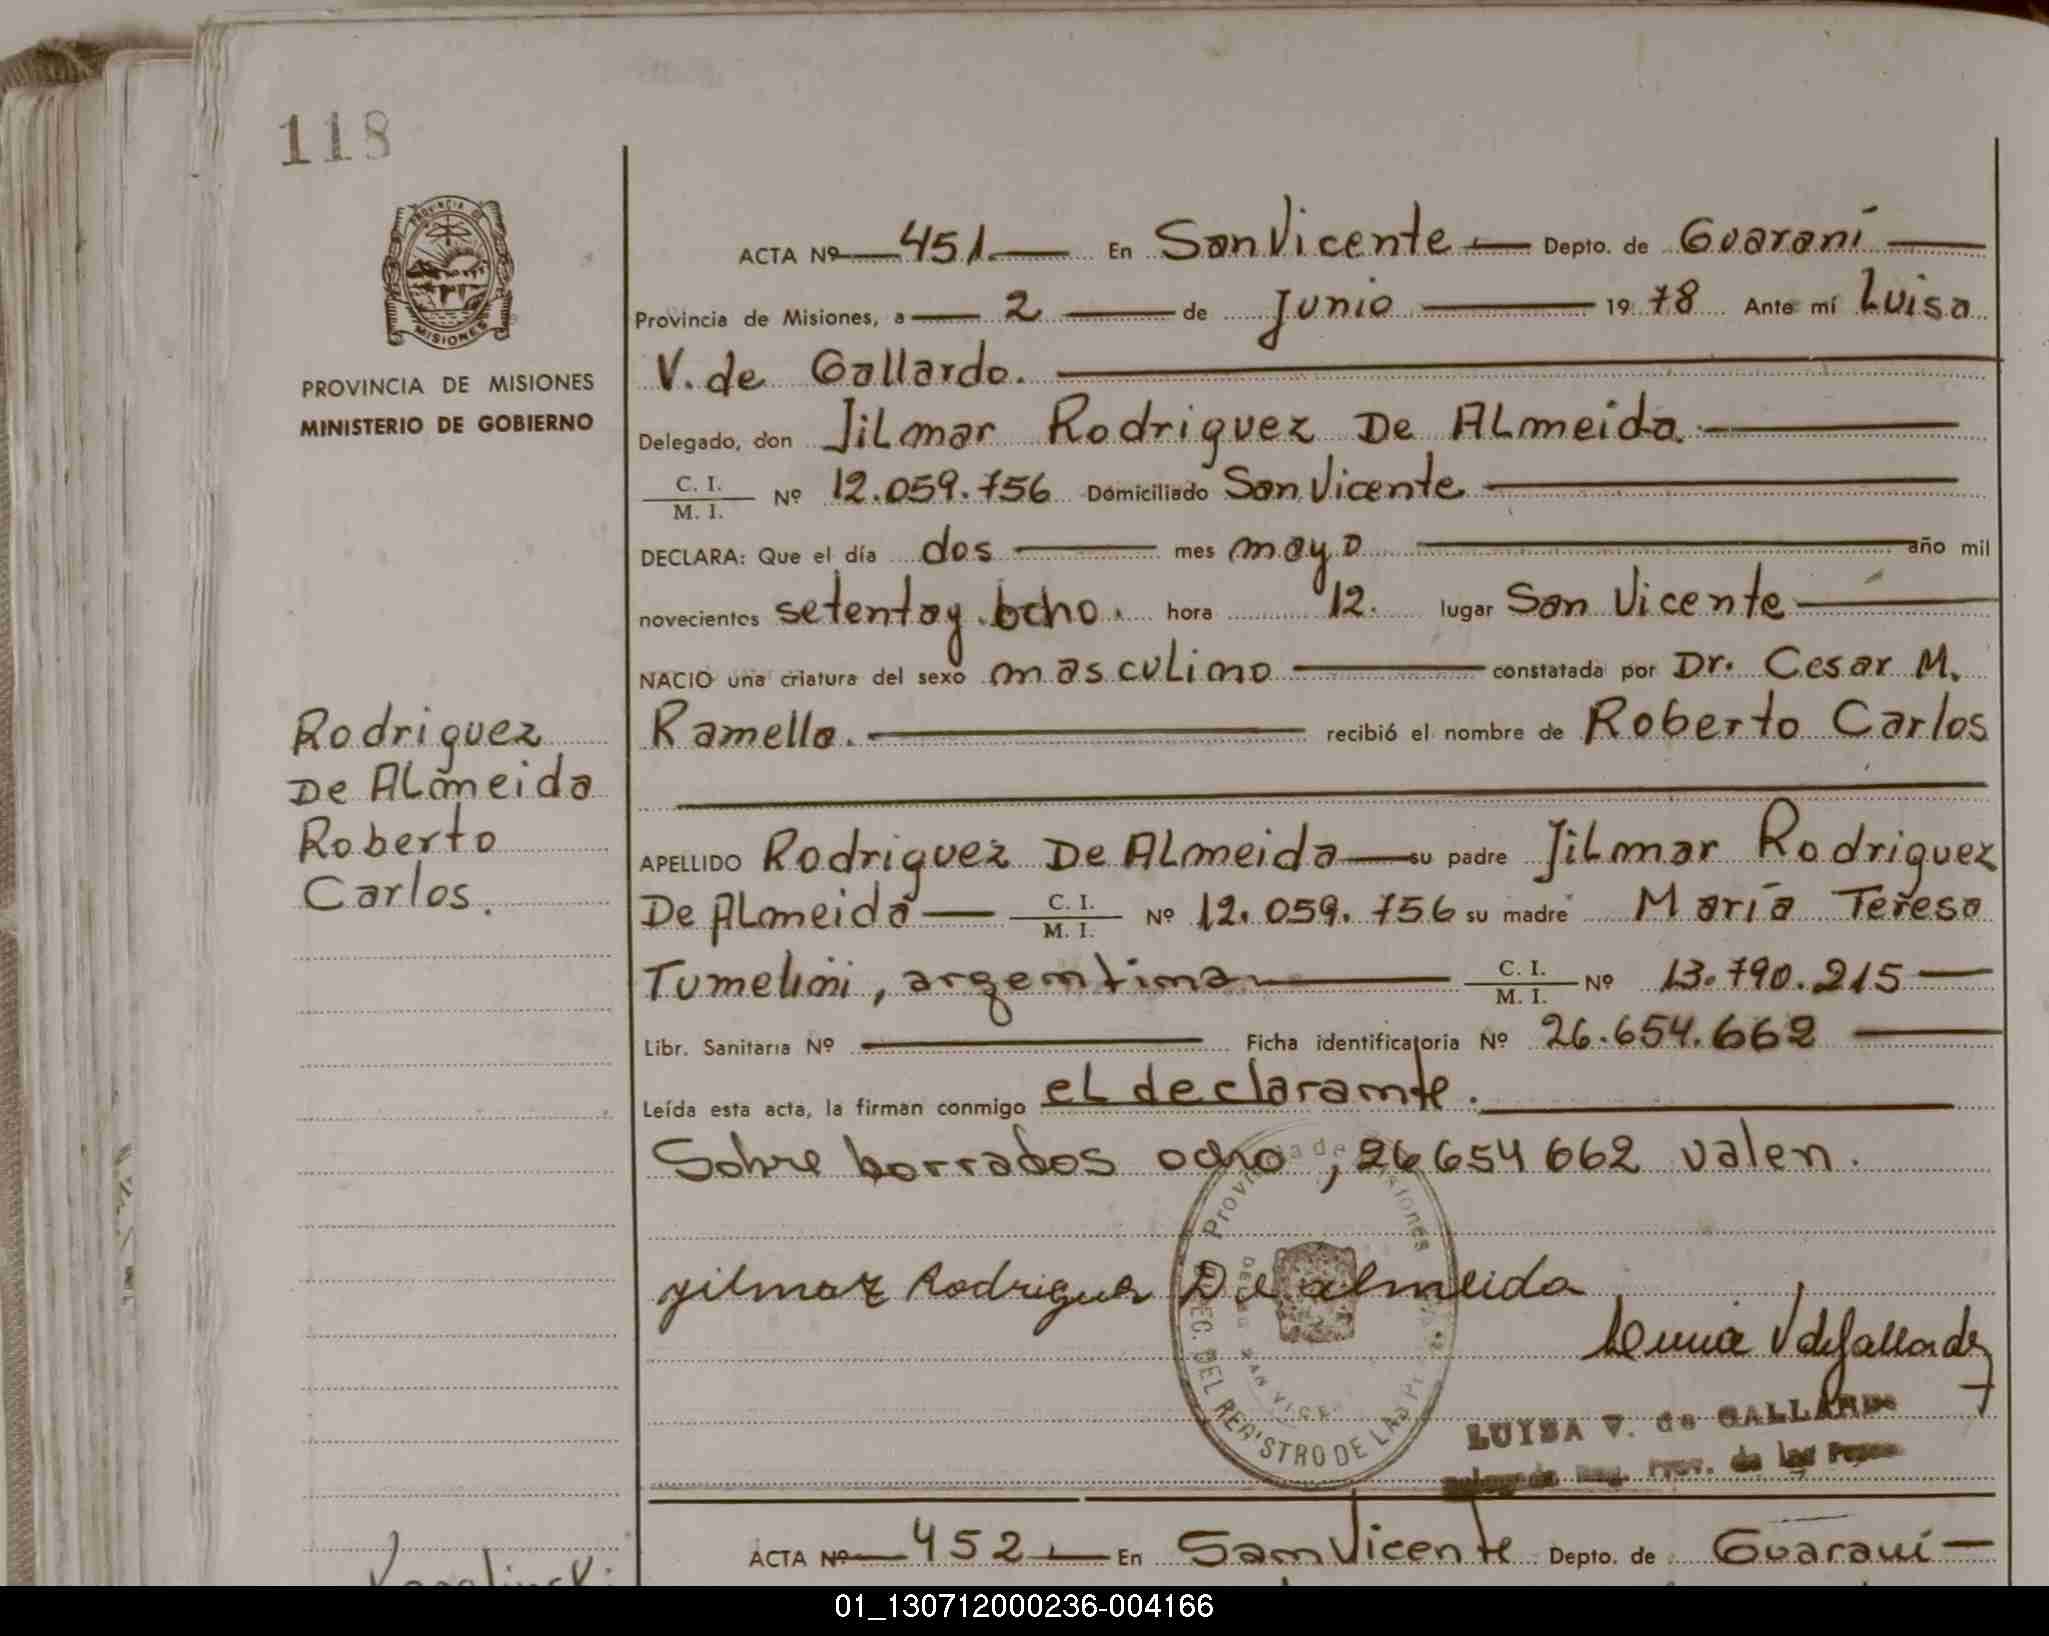 118
PROVINCIA DE MISIONES
MISIONES
PROVINCIA DE MISIONES
MINISTERIO DE GOBIERNO
Rodriguez
De ALmeida
Roberto
Carlos.
ACTA Nº 451 En San Vicente Depto. de Guaraní
Provincia de Misiones, a 2 de Junio 1978 Ante mí Luisa
V. de Gallardo.
Delegado, don JiLmar Rodriguez De ALmeida.
C. I.
M. I. Nº 12.059.756 Domiciliado San Vicente
DECLARA: Que el día dos mes mayo año mil
novecientos setenta y ocho. hora 12. lugar San Vicente
NACIO una criatura del sexo mascuLino constatada por Dr. Cesar M.
Ramella. recibió el nombre de Roberto Carlos
APELLIDO Rodriguez De ALmeida su padre JiLmar Rodriguez
De ALmeida C. I.
M. I. Nº 12.059.756 su madre María Teresa
Tumelini, argentina C. I.
M. I. Nº 13.790.215
Libr. Sanitaria Nº Ficha identificatoria Nº 26.654.662
Leída esta acta, la firman conmigo eL declarante.
Sobre borrados ocho, 26654662 valen.
Provincia de Misiones
DEL REGISTRO DE LAS
SAN VICE
jilmar Rodriguez De almeida
Luisa V de Gallardo
LUISA V. de GALLARDO
Reg. Prov. de las
ACTA Nº 452 En San Vicente Depto. de Guaraní
01_130712000236-004166